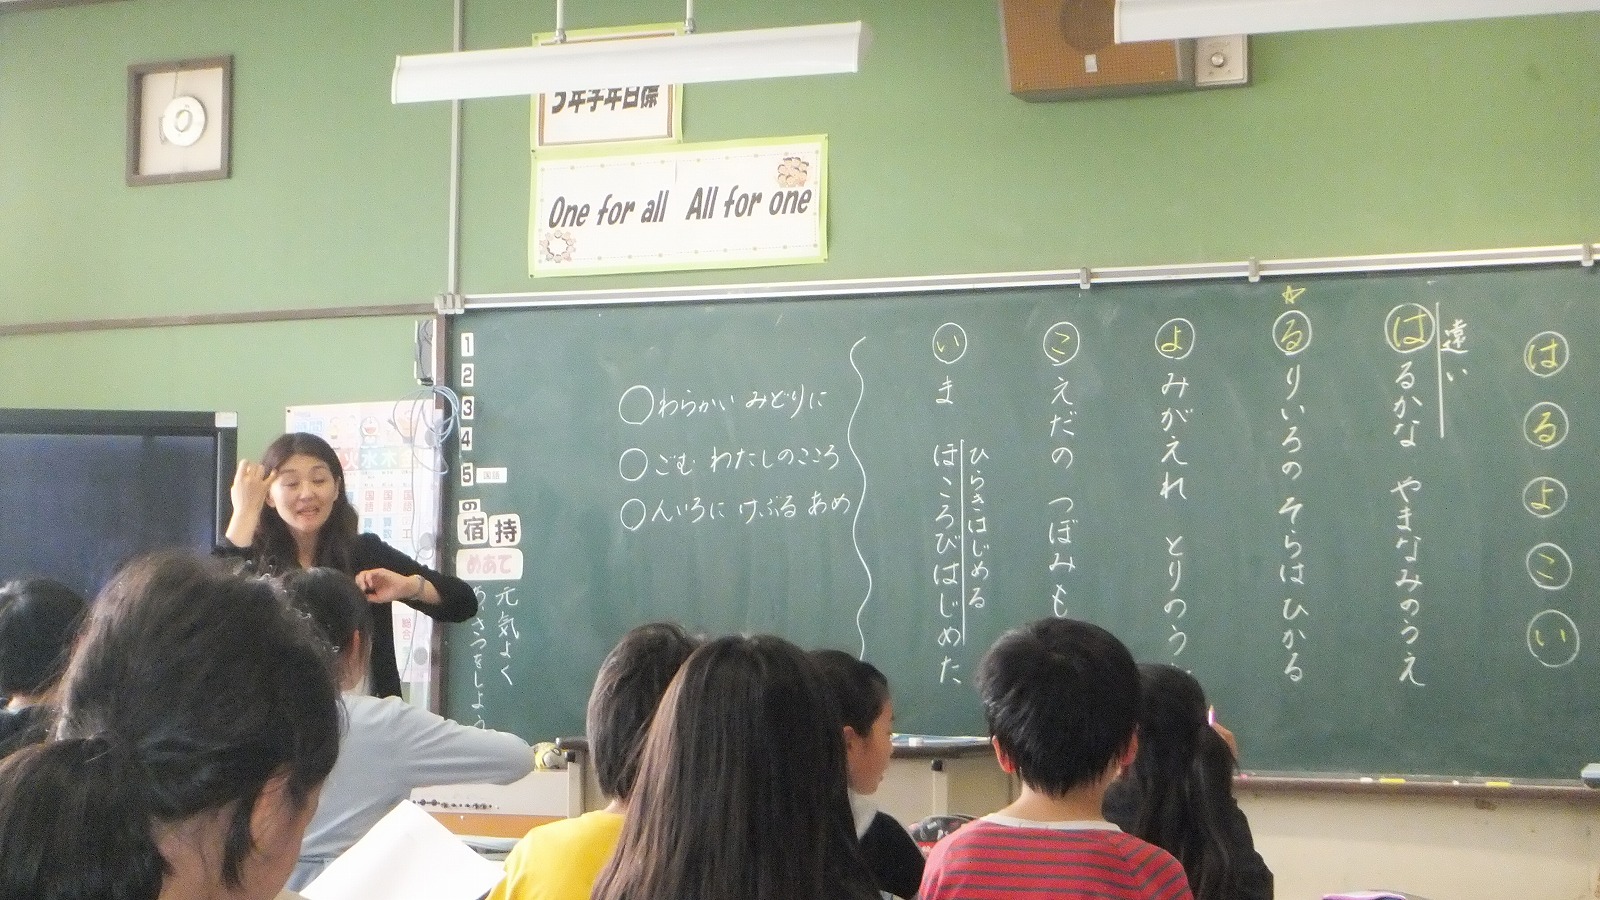 5年学年目標
One for all All for one
はるよこい
遠い
はるかな やまなみのうえ
るりいろの そらは ひかる
よみがえれ とりのう
こえだの つぼみも
いま ほころびはじめた
ひらきはじめる
○わらかい みどりに
○ごむ わたしのこころ
○んいろに けぶる あめ
1
2
3
4
5
国語
の
宿
持
めあて
元気よく
あいさつをしよう
火水木金
国語
国語
国語
総合